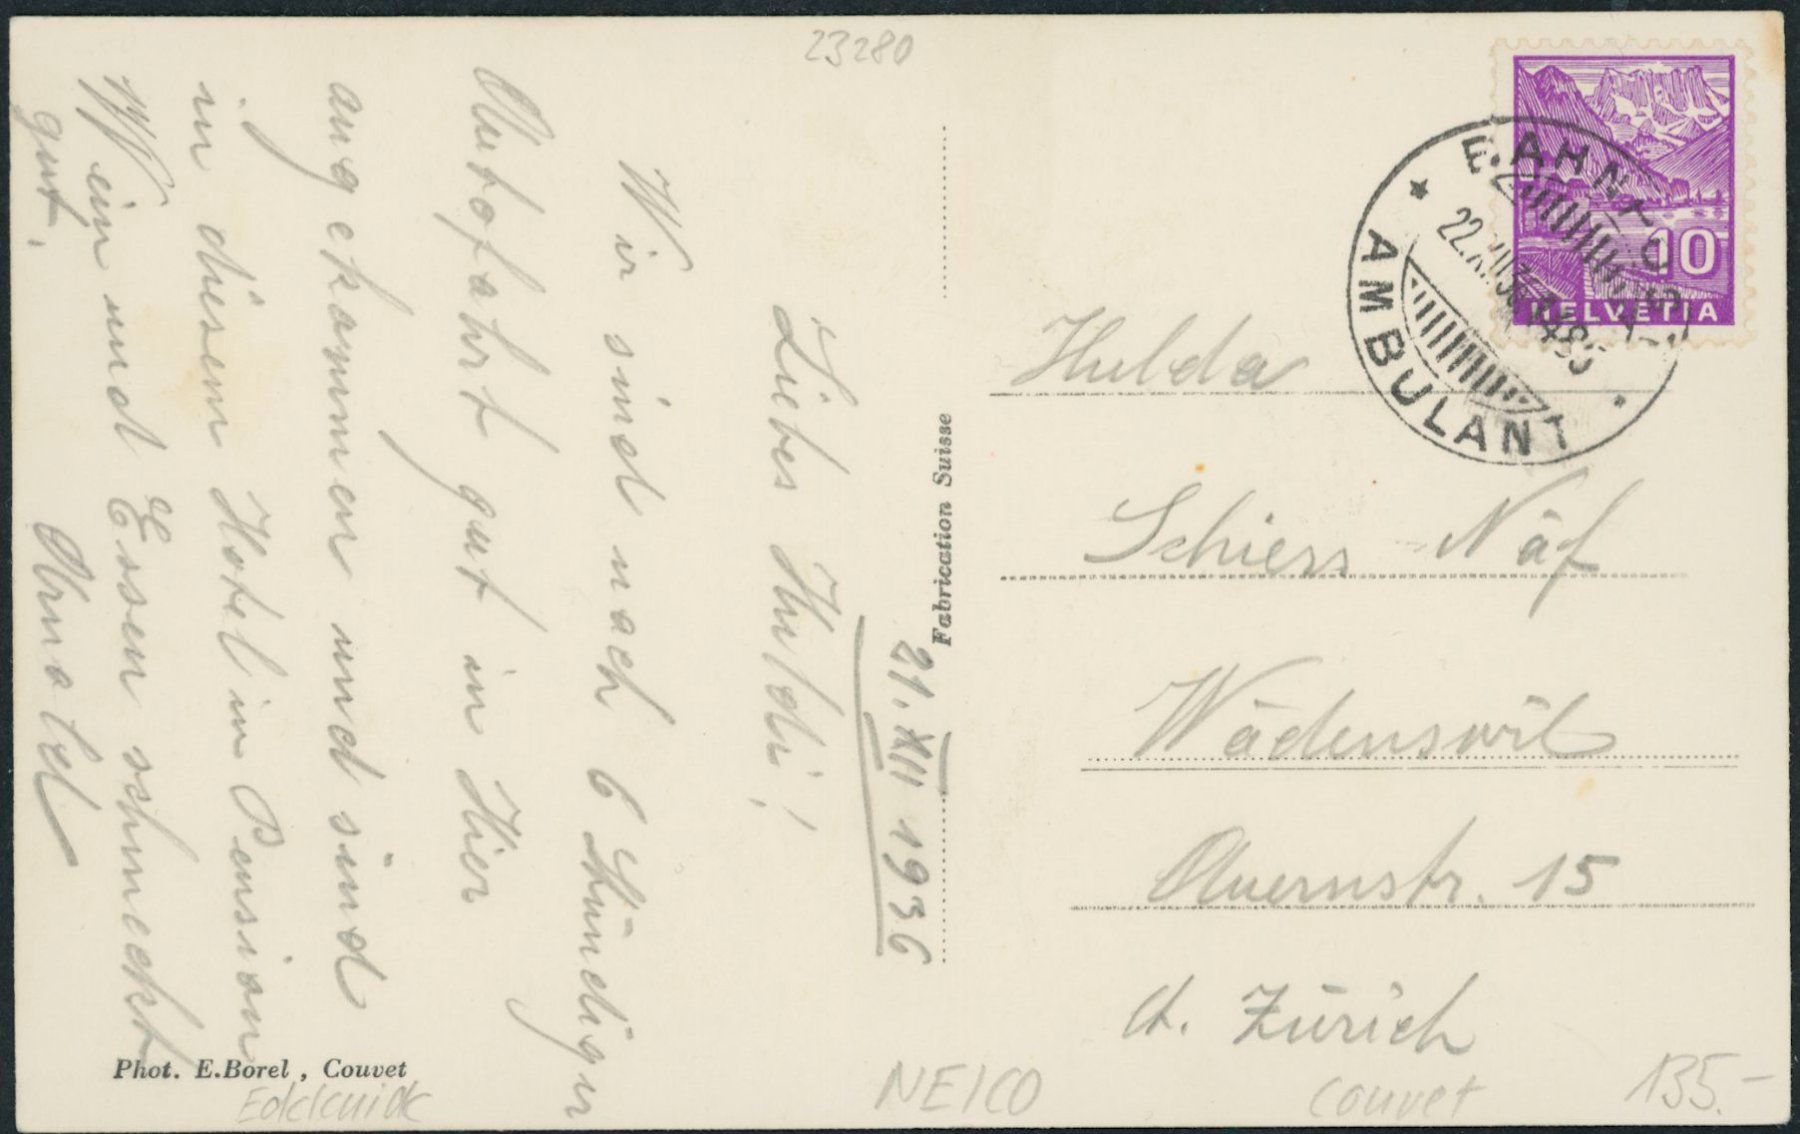 23280
21. XII 1936
Liebes Huldi!
Wir sind nach 6 Stündiger
Autofahrt gut in Hier
angekommen und sind
in diesem Hotel in Pension
Wein und Essen schmeckt
gut.
Fabrication Suisse
Phot. E. Borel, Couvet
AMBULANT
22.XII.36
10
HELVETIA
Hulda
Schiess - Näf
Wädenswil
15
Zürich
NEICO
Couvet
135.-